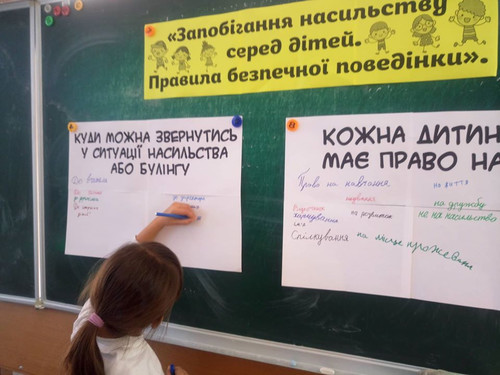 «Запобігання насильству
серед дітей.
Правила безпечної поведінки».
КУДИ МОЖНА ЗВЕРНУТИСЬ
У СИТУАЦІЇ НАСИЛЬСТВА
АБО БУЛІНГУ
КОЖНА ДИТИН
МАЄ ПРАВО НА
Право на навчання
на життя
на дружбу
харчування
на розвиток
не на насильство
Спілкування
на місце проживання